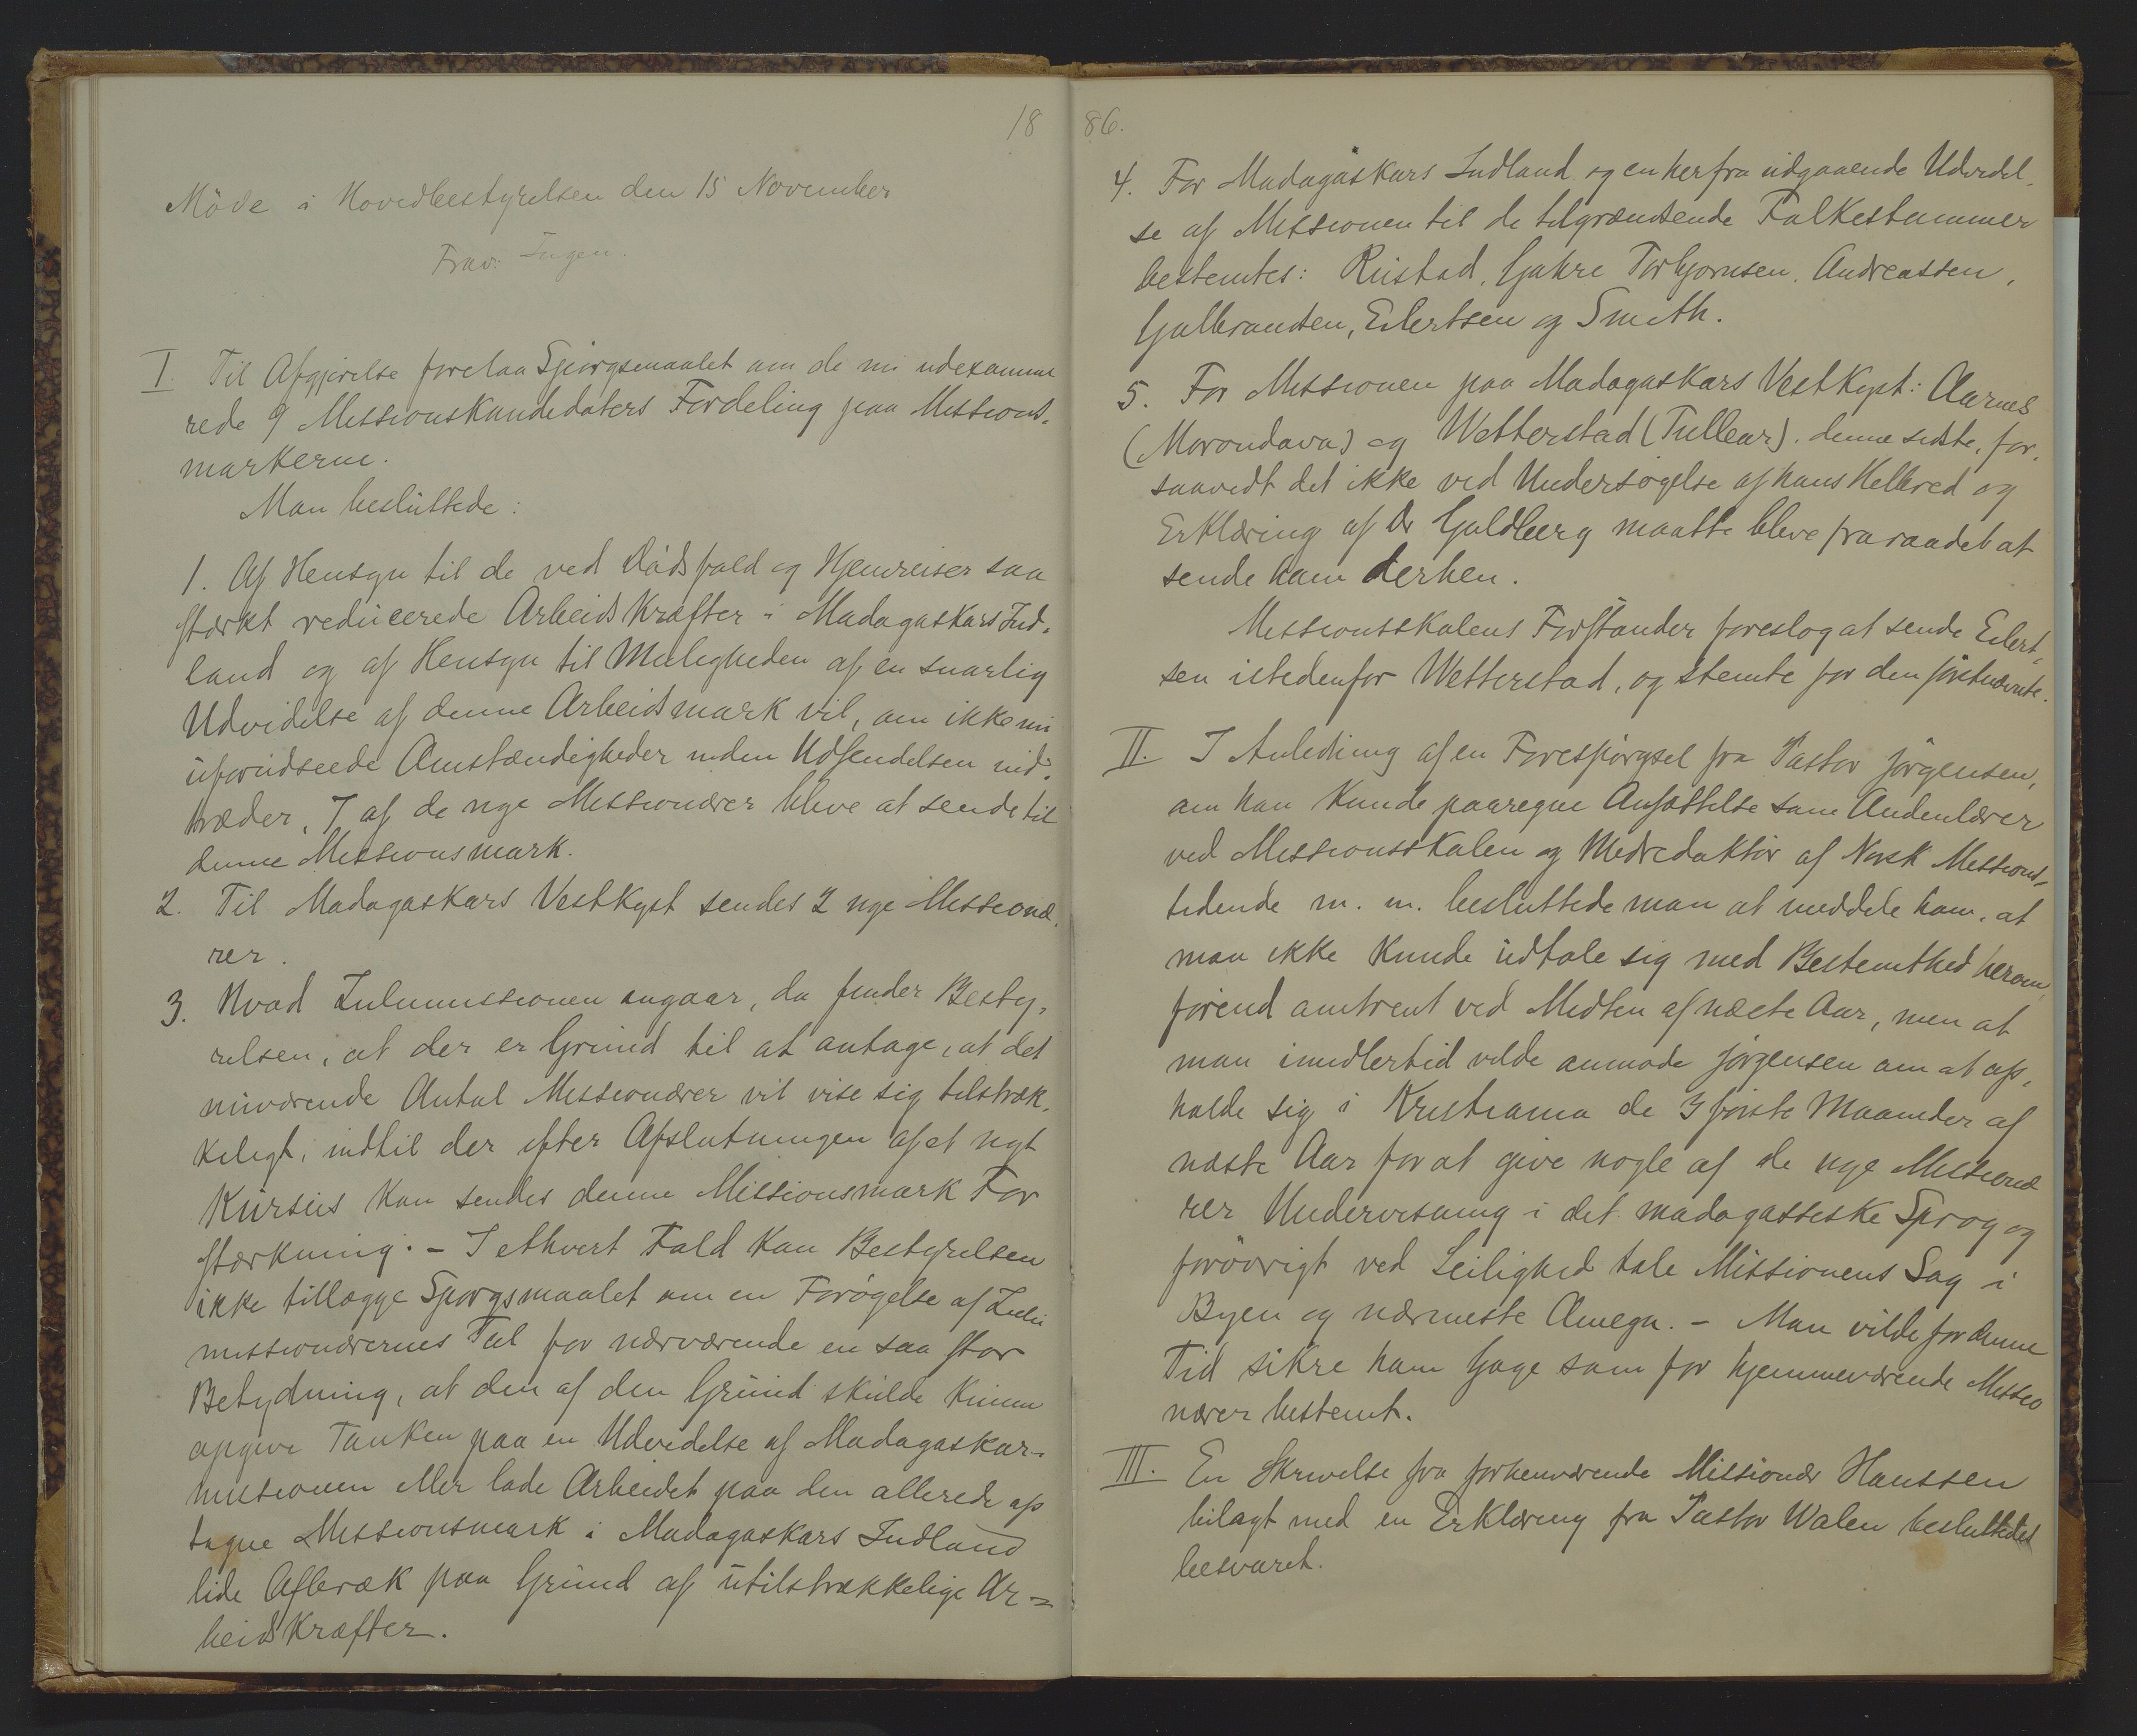 18
Møde i Hovedbestyrelsen den 15 November
Frav: Ingen.
I. Til Afgjørelse forelaa Spørgsmaalet om de nu udexamine
rede 9 Missionskandidaters Fordeling paa Missions-
markerne.
Man besluttede:
1. Af Hensyn til de ved Dødsfald og Hjemreiser saa
stærkt reducerede Arbeidskræfter i Madagaskars Ind-
land og af Hensyn til Muligheden af en snarlig
Udvidelse af denne Arbeidsmark vil, om ikke nu
uforudseede Omstændigheder inden Udsendelsen ind-
træder, 7 af de nye Missionærer blive at sende til
denne Missionsmark.
2. Til Madagaskars Vestkyst sendes 2 nye Missionæ-
rer.
3. Hvad Zulumissionen angaar, da finder Besty-
relsen, at der er Grund til at antage, at det
nuværende Antal Missionærer vil vise sig tilstræk-
keligt, indtil der efter Afslutningen af et nyt
Kursus kan sendes denne Missionsmark For
stærkning. - I ethvert Fald kan Bestyrelsen
ikke tillægge Spørgsmaalet om en Forøgelse af Zulu
missionærernes Tal for nærværende en saa stor
Betydning, at den af den Grund skulde kunne
opgive Tanken paa en Udvidelse af Madagaskar-
missionen eller lade Arbeidet paa den allerede op
tagne Missionsmark i Madagaskars Indland
lide Afbræk paa Grund af utilstrækkelige Ar-
beidskræfter.
86.
4. For Madagaskars Indland og en herfra udgaaende Udvidel-
se af Missionen til de tilgrændsende Folkestammer
bestemtes: Rustad, Gahre Torbjørnsen, Andreassen,
Gulbrandsen, Eilertsen og Smith.
5. For Missionen paa Madagaskars Vestkyst: Aarnes
(Morondava) og Wetterstad (Tullear), denne sidste, for-
saavidt det ikke ved Undersøgelse af hans Helbred og
Erklæring af Dr Guldberg maatte blive fraraadet at
sende ham derhen.
Missionsskolens Forstander foreslog at sende Eilert-
sen istedenfor Wetterstad, og stemte for den førstnævnte.
II. I Anledning af en Forespørgsel fra Pastor Jørgensen,
om han kunde paaregne Ansættelse som Andenlærer
ved Missionsskolen og Medredaktør af Norsk Missions-
tidende m. m. besluttede man at meddele ham, at
man ikke kunde udtale sig med Bestemthed herom,
førend omtrent ved Midten af næste Aar, men at
man imidlertid vilde anmode Jørgensen om at op-
holde sig i Kristiania de 3 første Maaneder af
næste Aar for at give nogle af de nye Missionæ
rer Undervisning i det madagassiske Sprog og
forøvrigt ved Leilighed tale Missionens Sag i
Byen og nærmeste Omegn. - Man vilde for denne
Tid sikre ham Gage som for hjemmeværende Missio
nærer bestemt.
III. En Skrivelse fra forhenværende Missionær Hanssen
bilagt med en Erklæring fra Pastor Walen besluttedes
besvaret.